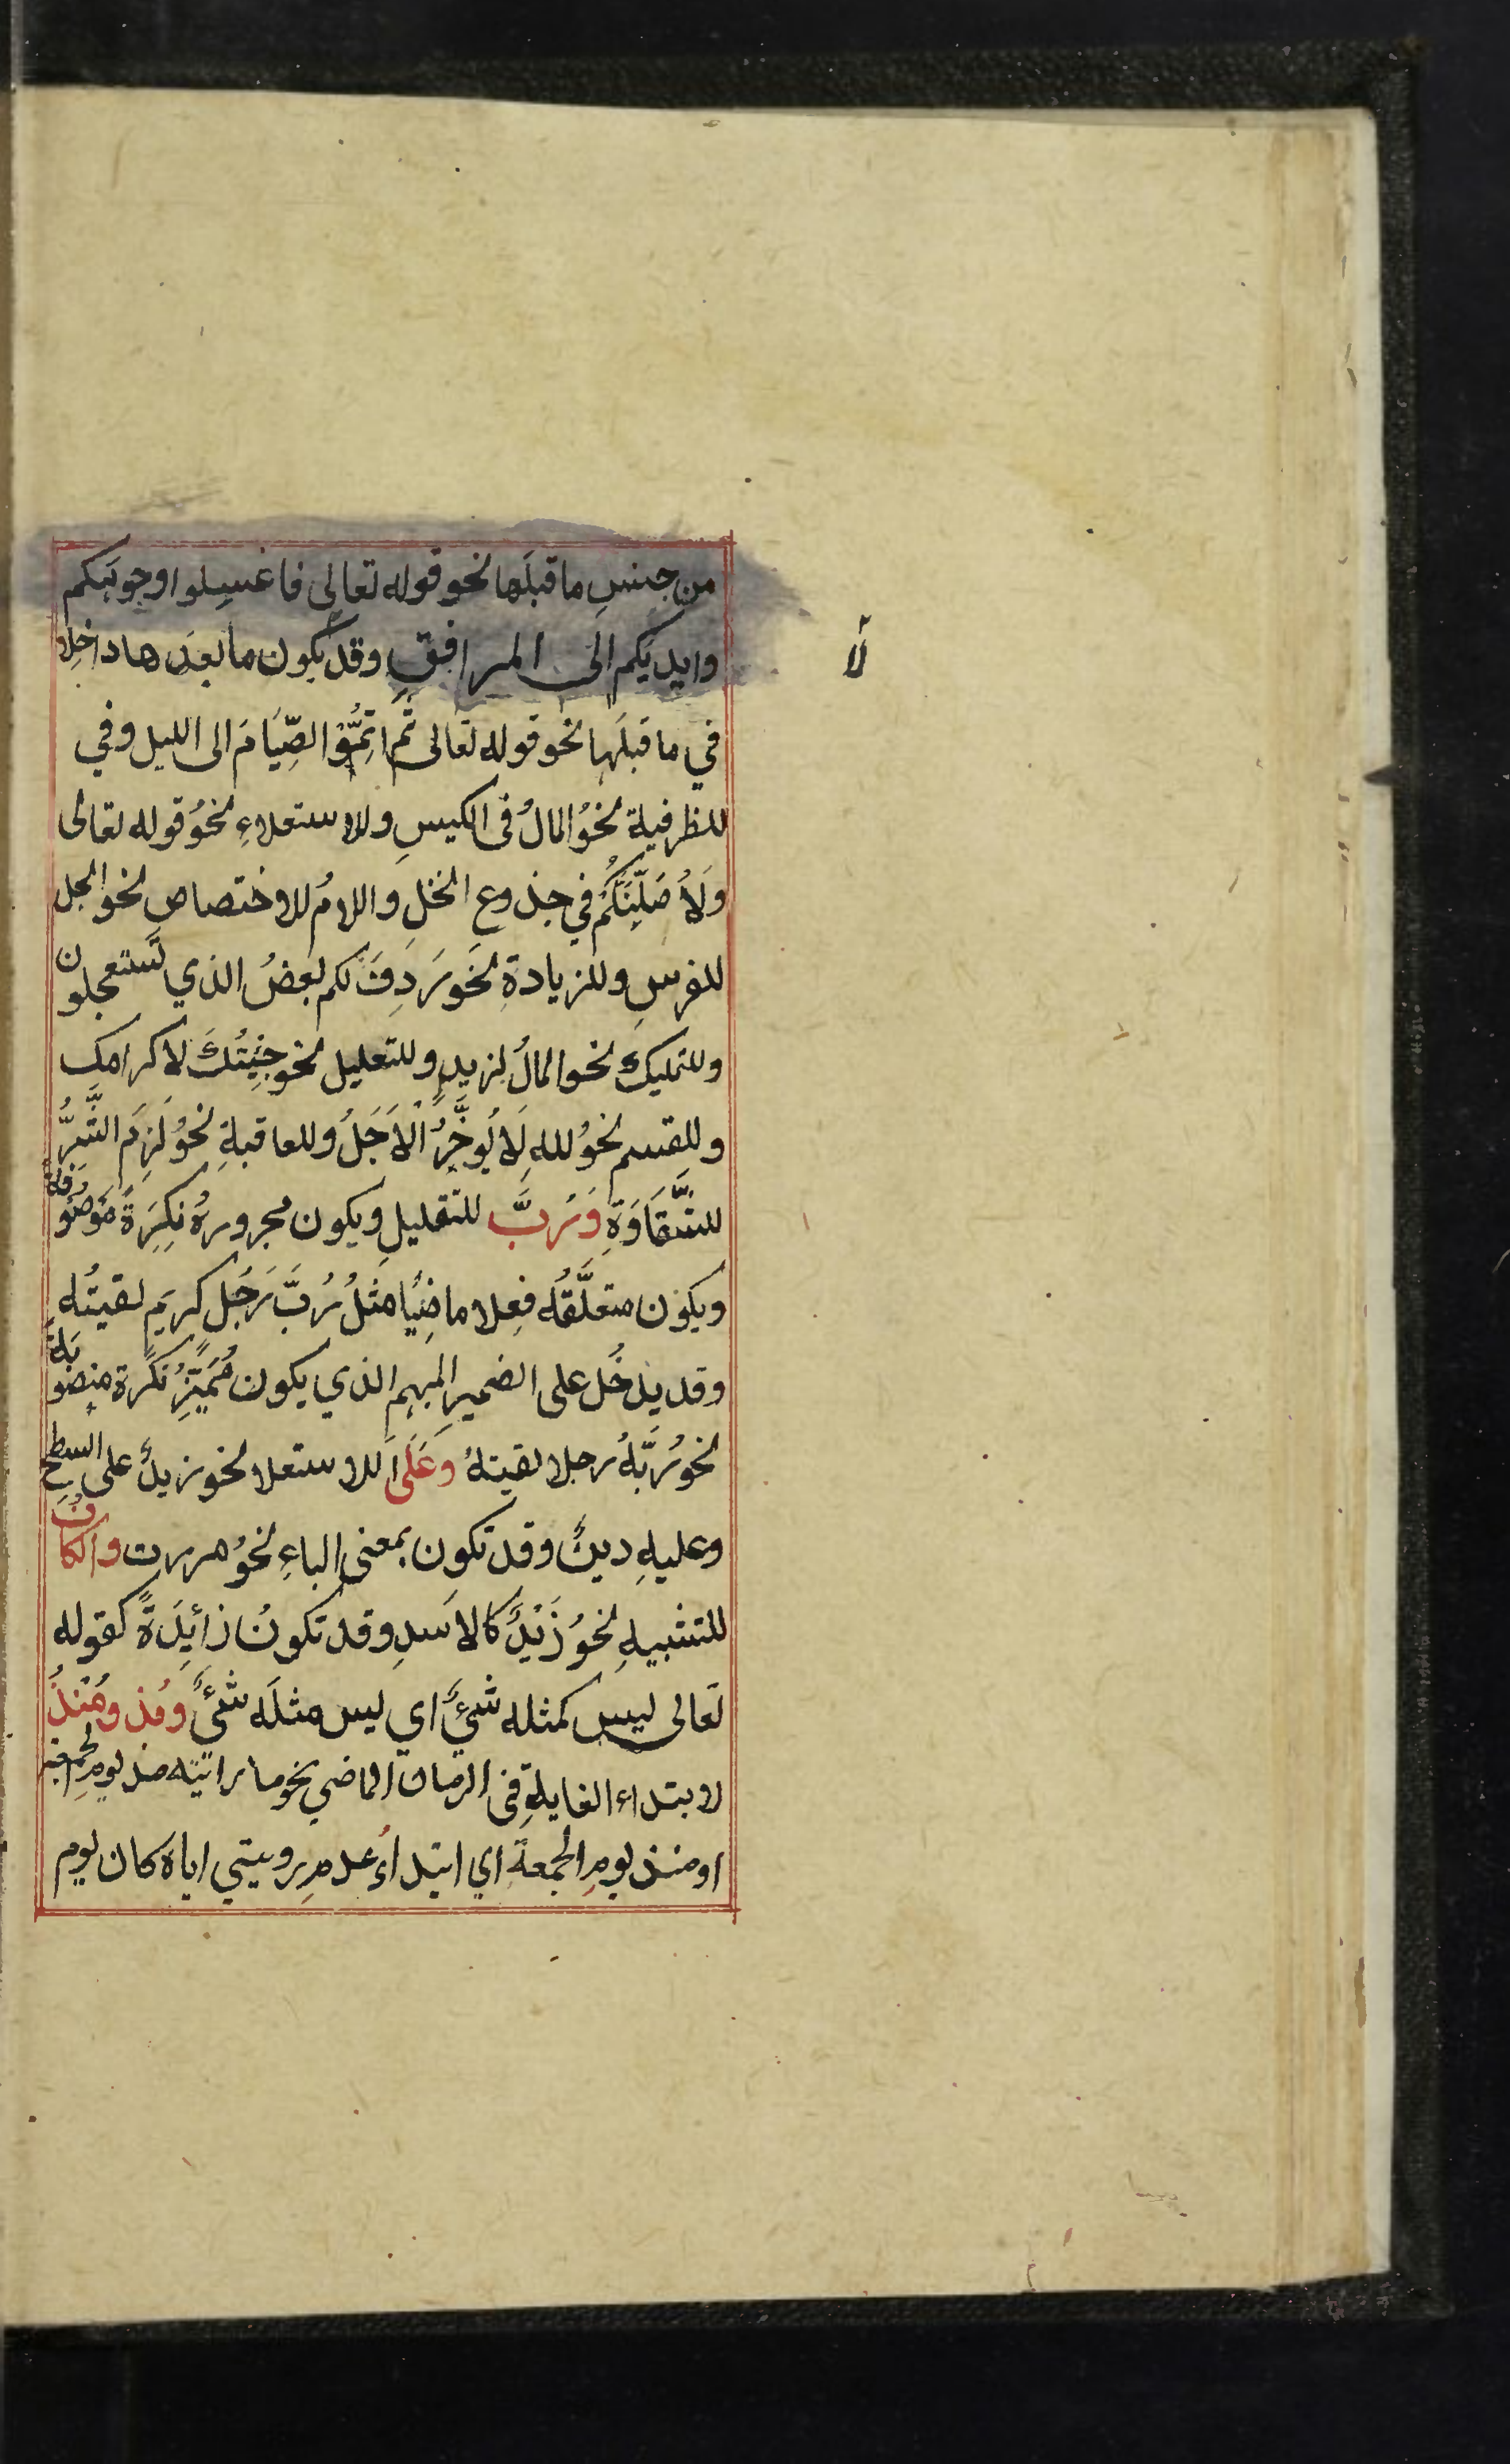 من جنسِ ما قبلَها نحو قوله تعالى فاغسِلوا وجوهَكم
وايديَكم الى المرافقِ وقد يكون ما بعدَها داخِلا
لا
في ما قبلَها نحو قوله تعالى ثُمَّ اتِمُّوْا الصِّيَامَ الى الليل وفي
للظرفية نحوُ المالُ فى الكيسِ وللاستعلاءِ نحوُ قوله تعالى
وَلَاُصَلِّبَنَّكُمْ في جذوع النخلِ واللامُ للاختصاص نحو الجل
للفرسِ وللزيادةِ نحوَ رَدِفَ لكم بعضُ الذي تستعجلون
وللتمليك نحو المالُ لزيدٍ وللتعليل نحو جِئْتُكَ لاكرامك
وللقسم نحوُ للهِ لَا يُوخَّرُ الْاَجَلُ وللعاقبةِ نحوُ لَزِمَ الشَّرُّ
للشَّقَاوَةِ وَرُبَّ للتقليلِ ويكون مجرورهُ نكِرَةً مَوصُوفةً
ويكون متعلَّقُه فِعلا ماضِيًا مثلُ رُبَّ رَجُلٍ كريمٍ لقيتُه
وقد يدْخُل على الضميرِ المبهم الذي يكون مُمَيِّزُ نكرة منصوبةً
نحوُ رُبَّهُ رجلا لقيتهُ وَعَلَى للاستعلا نحو زيدٌ على السطحِ
وعليهِ دينٌ وقد تكون بمعنى الباءِ نحوُ مررت والكافُ
للتشبيهِ نحوُ زَيْدٌ كالاسَدِ وقد تكونُ زائِدَةً كقوله
تعالى ليس كمثله شئٌ اي ليس مثلَه شئٌ ومُذ ومُنْذُ
لابتداء الغايةِ فى الزمان الماضي نحو ما رائيته مذ يومِ الجمعة
او منذ يومِ الجمعة اي ابتداءُ عدمِ رويتي اياه كان يوم